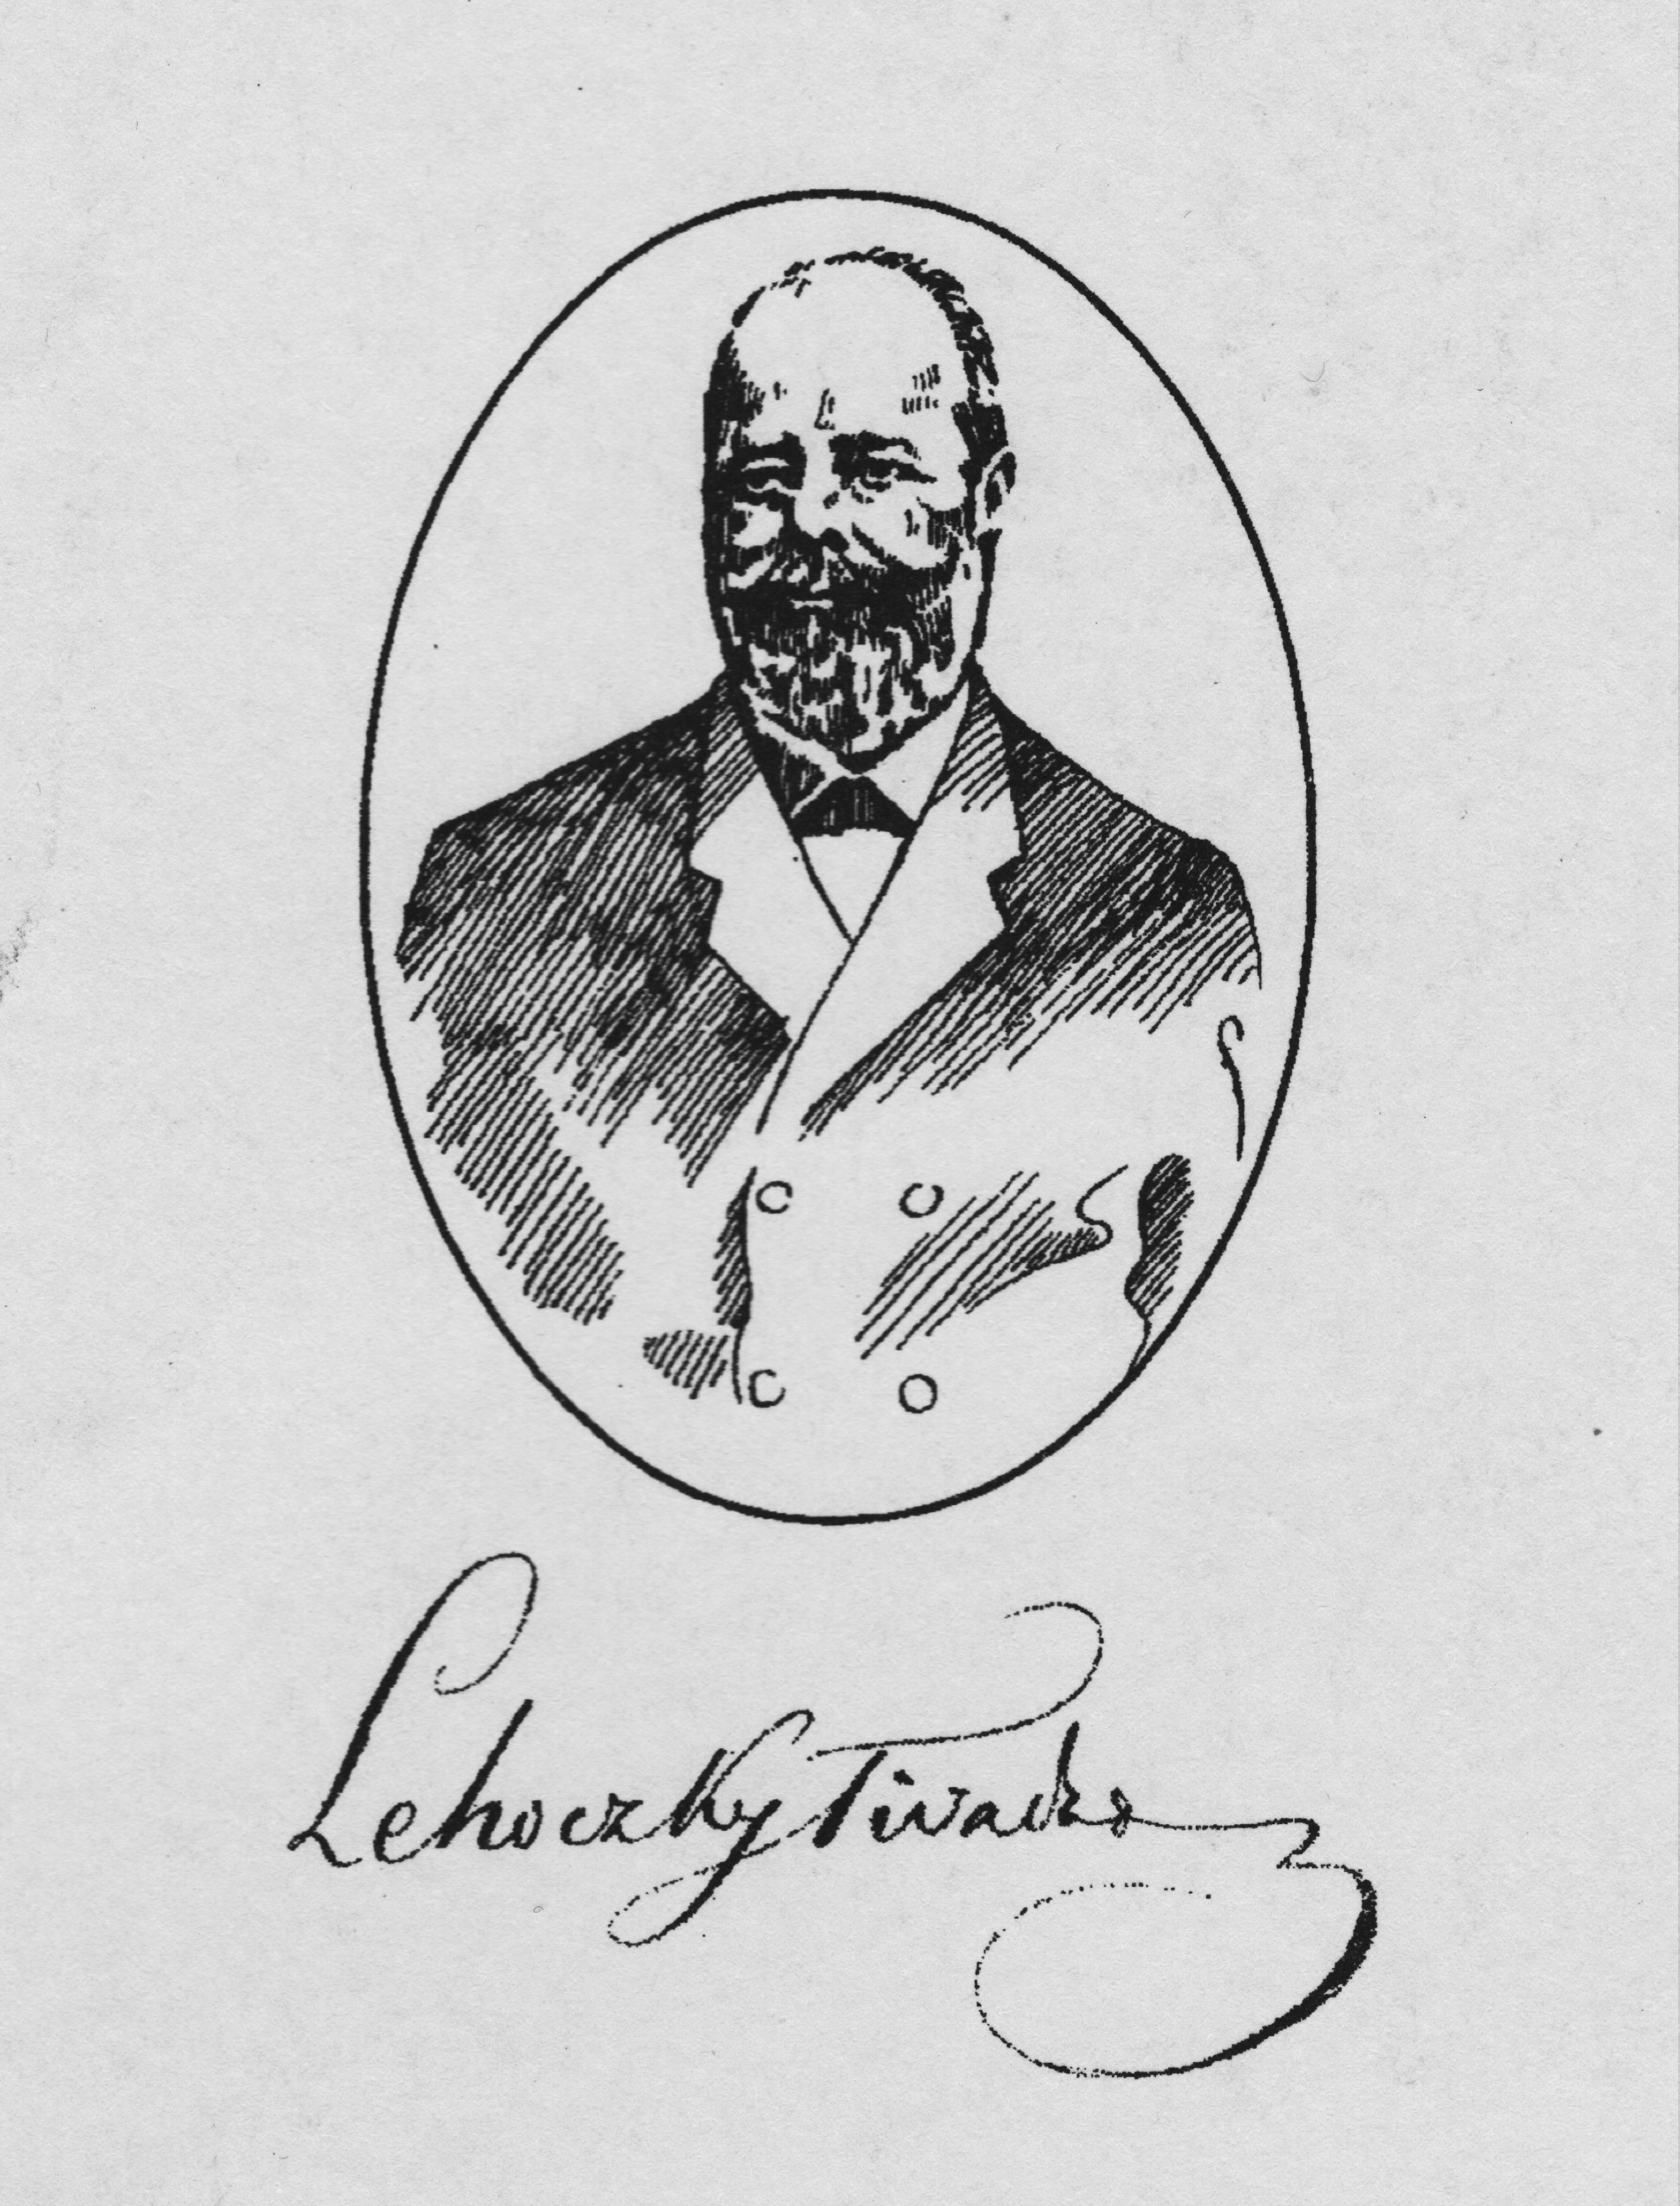 Lehoczky Tivadar